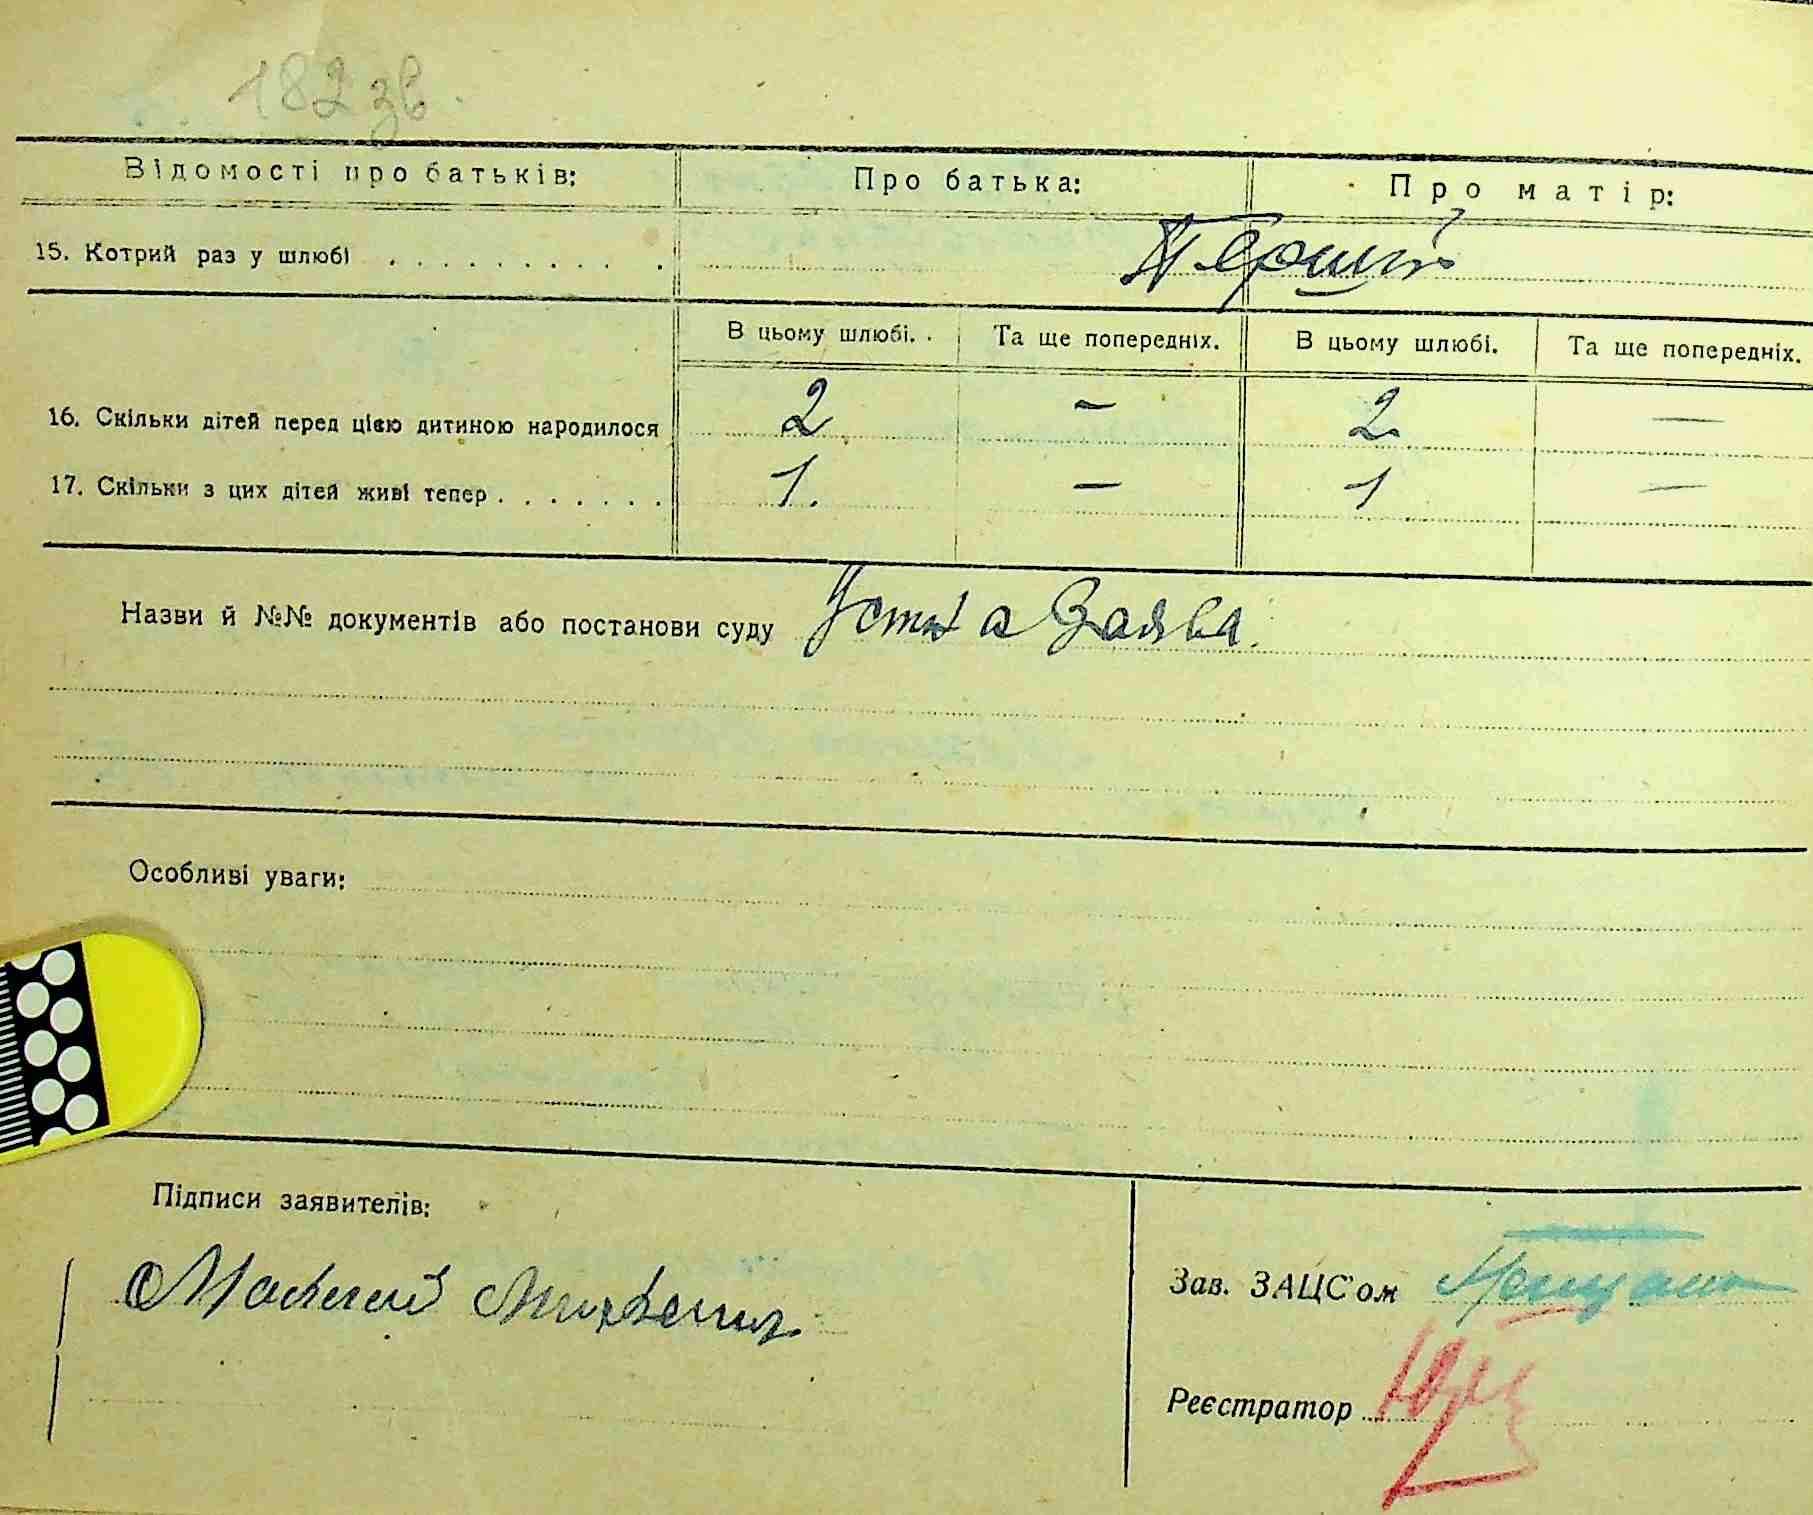 182 зв.
Відомості про батьків: Про батька: Про матір:
15. Котрий раз у шлюбі . . . . . . . . . . Перший
В цьому шлюбі. Та ще попередніх. В цьому шлюбі. Та ще попередніх.
16. Скільки дітей перед цією дитиною народилося 2 – 2 —
17. Скільки з цих дітей живі тепер . . . . . . . 1. – 1 —
Назви й №№ документів або постанови суду Устна Заява.
Особливі уваги:
Підписи заявителів:
Зав. ЗАЦС'ом
Реєстратор